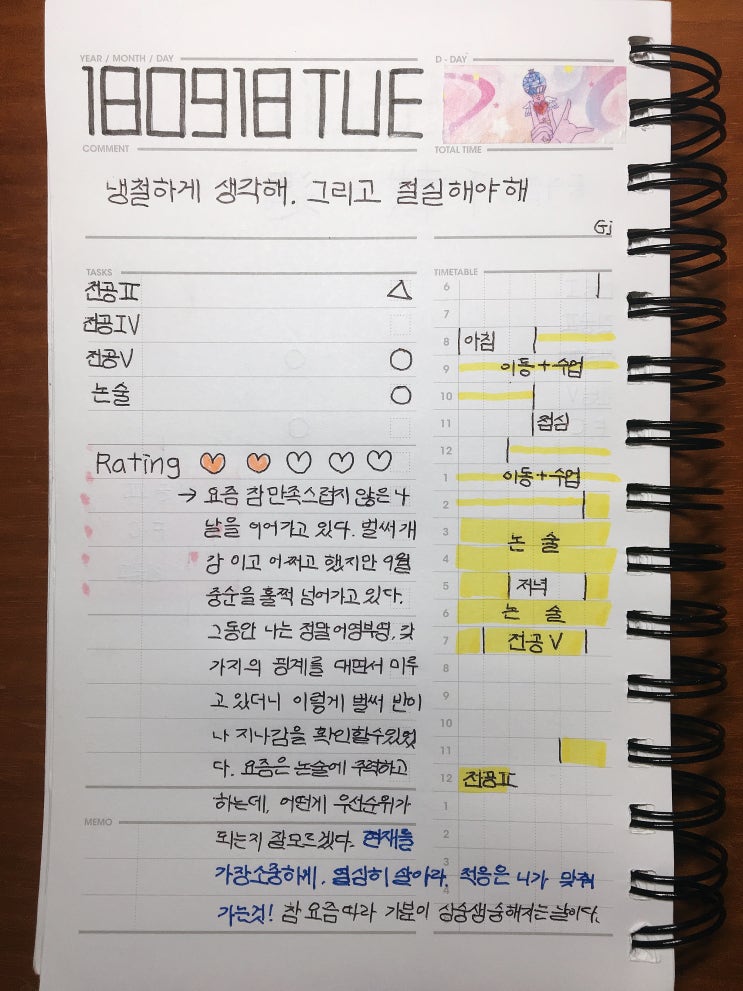 YEAR / MONTH / DAY
D - DAY
180918 TUE
COMMENT
TOTAL TIME
냉철하게 생각해. 그리고 절실해야해
Gj
TASKS
전공Ⅱ
전공Ⅳ
전공Ⅴ
논술
Rating
→ 요즘 참 만족스럽지 않은 나
날을 이어가고 있다. 벌써 개
강 이고 어쩌고 했지만 9월
중순을 훌쩍 넘어가고 있다.
그동안 나는 정말 어영부영, 갖
가지의 핑계를 대면서 미루
고 있더니 이렇게 벌써 반이
나 지나감을 확인할수있었
다. 요즘은 논술에 주력하고
하는데, 어떤게 우선순위가
MEMO
되는지 잘모르겠다. 현재를
가장소중하게, 열심히 살아라. 적응은 니가 맞춰
가는것! 참 요즘따라 기분이 싱숭생숭해지는 날이다.
TIMETABLE
6
7
8 아침
9 이동+수업
10
11 점심
12
1 이동+수업
2
3 논술
4
5 저녁
6 논술
7 전공Ⅴ
8
9
10
11
12 전공Ⅱ
1
2
3
4